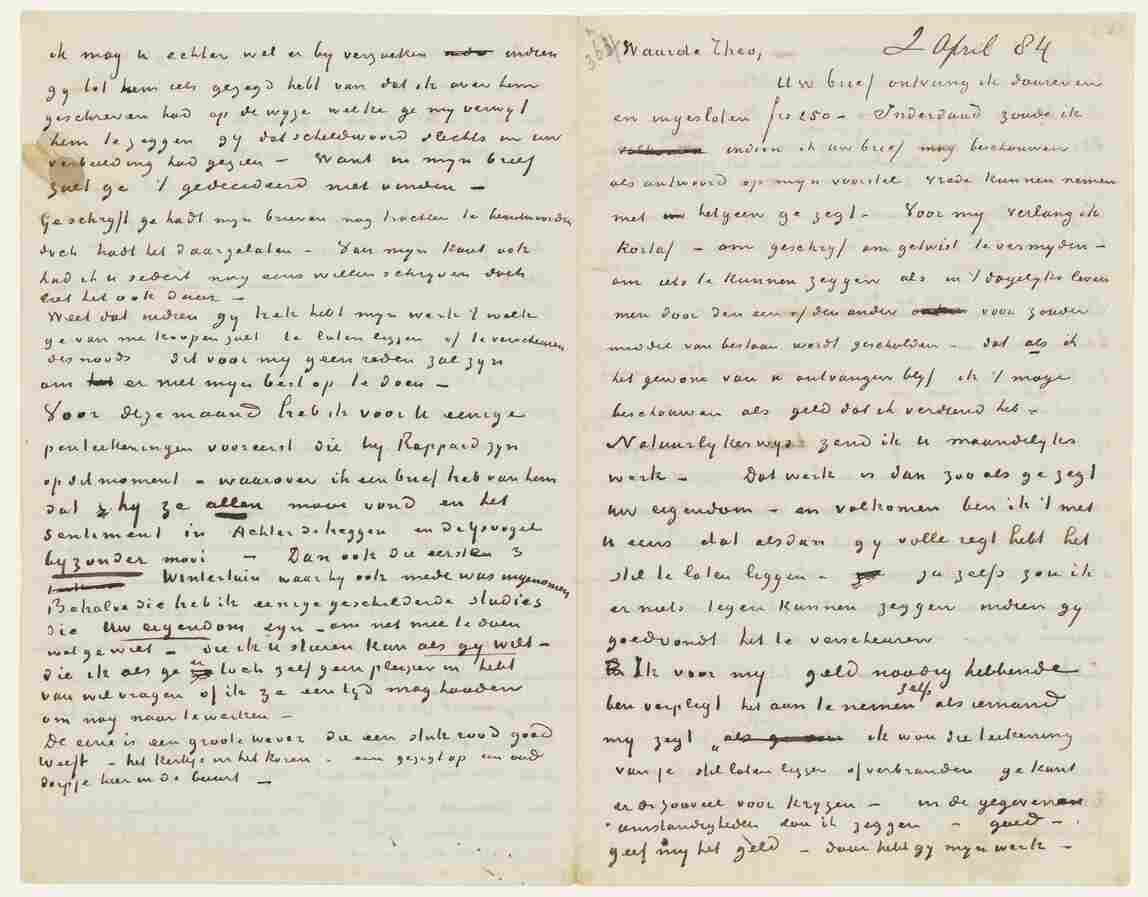 ik mag u echter wel er by verzoeken indien
gy tot hem iets gezegd hebt van dat ik over hem
geschreven had op de wyze welke ge my verwyt
hem te zeggen gy dat scheldwoord slechts in uw
verbeelding had gezien – Want in myn brief
zult ge 't gedecideerd niet vinden –
Geschryft ge hadt myn brieven nog trachten te beantwoorden
doch hadt het daargelaten – Van myn kant ook
had ik u sedert nog eens willen schryven doch
liet het ook daar –
Weet dat indien gy trek hebt myn werk 't welk
ge van me koopen zult te laten liggen of te verscheuren
desnoods dit voor my geen reden zal zyn
om er niet myn best op te doen –
Voor deze maand heb ik voor U eenige
penteekeningen vooreerst die by Rappard zyn
op dit moment – waarover ik een brief heb van hem
dat hy ze allen mooi vond en het
sentiment in Achter de heggen en de Ysvogel
byzonder mooi – Dan ook die eersten 3
Wintertuin waar hy ook mede was ingenomen
Behalve die heb ik eenige geschilderde studies
die Uw eigendom zyn – om net mee te doen
wat ge wilt – die ik U sturen kan als gy wilt –
die ik als ge er toch zelf geen pleizier in hebt
van wil vragen of ik ze een tyd mag houden
om nog naar te werken –
De eene is een groote wever die een stuk rood goed
weeft – het kerkje in het koren – een gezigt op een oud
dorpje hier in de buurt –
Waarde Theo, 2 April 84
Uw brief ontvang ik daareven
en ingesloten frs 250– Inderdaad zoude ik
indien ik uw brief mag beschouwen
als antwoord op myn voorstel vrede kunnen nemen
met hetgeen ge zegt – Voor my verlang ik
kortaf – om geschryf om getwist te vermyden –
om iets te kunnen zeggen als in 't dagelyks leven
men door den een of den ander voor zonder
middel van bestaan wordt gescholden – dat als ik
het gewone van u ontvangen blyf ik 't moge
beschouwen als geld dat ik verdiend heb –
Natuurlykerwys zend ik U maandelyks
werk – Dat werk is dan zoo als ge zegt
uw eigendom – en volkomen ben ik 't met
U eens dat alsdan gy volle regt hebt het
stil te laten liggen – ja zelfs zou ik
er niets tegen kunnen zeggen indien gy
goedvondt het te verscheuren
Ik voor my geld noodig hebbende
ben verpligt het aan te nemen zelfs als iemand
my zegt „ ik wou die teekening
van je stil laten liggen of verbranden ge kunt
er zooveel voor krygen – in de gegeven
omstandigheden zou ik zeggen – goed –
geef my het geld – daar hebt gy myn werk –